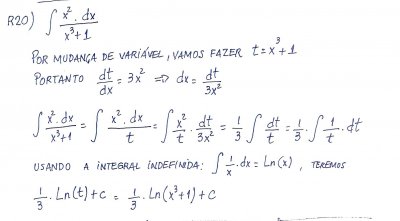 R20) ∫ x². dx / x³+1
POR MUDANÇA DE VARIÁVEL, VAMOS FAZER t = x³+1
PORTANTO dt/dx = 3x² ⇒ dx = dt/3x²
∫ x². dx / x³+1 = ∫ x². dx / t = ∫ x²/t . dt/3x² = 1/3 ∫ dt/t = 1/3 . ∫ 1/t . dt
USANDO A INTEGRAL INDEFINIDA: ∫ 1/x . dx = Ln(x), TEREMOS
1/3 . Ln(t) + C = 1/3 . Ln(x³+1) + C